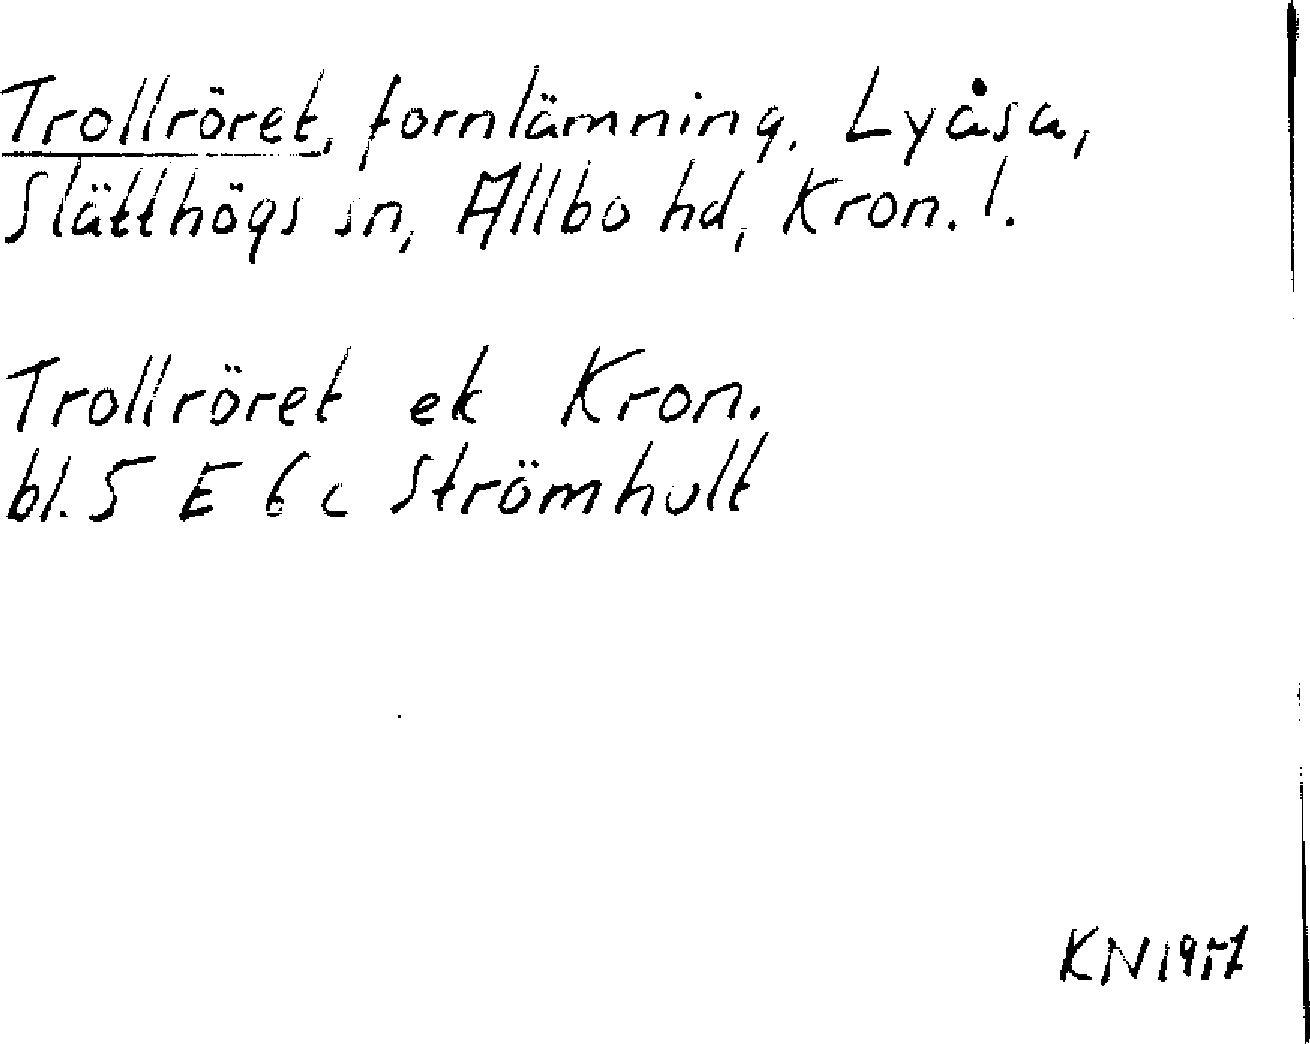 Trollröret, fornlämning. Lyåsa,
Slätthögs sn, Allbo hd, Kron. l.
Trollröret ek Kron.
bl. 5 E 6 c Strömhult
KN 1957